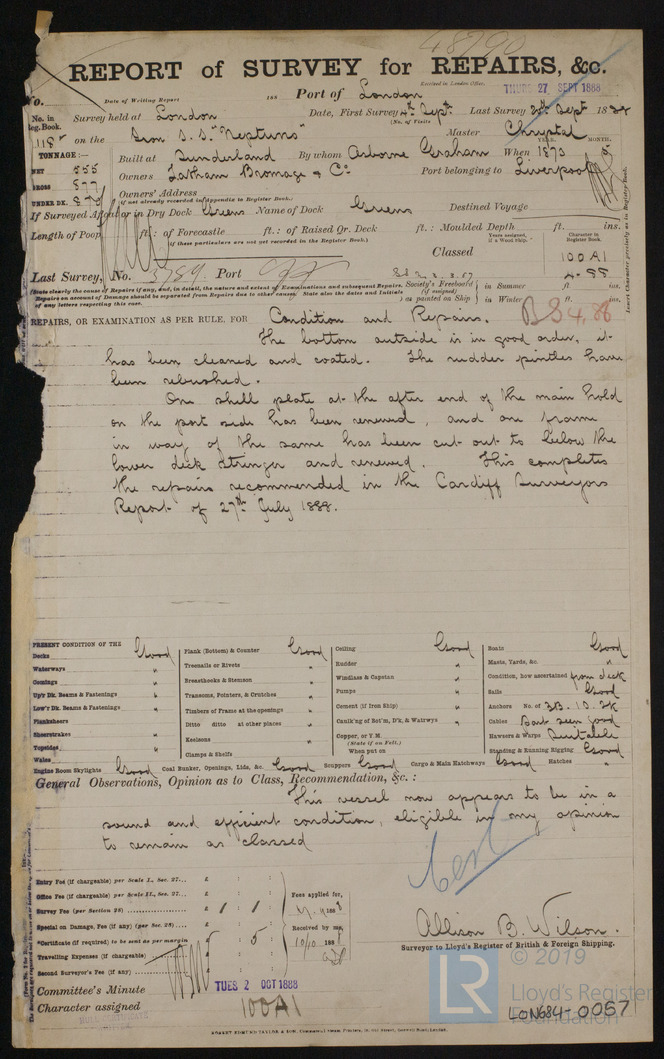 48790
REPORT of SURVEY for REPAIRS, &c.
Received in London Office, THURS 27 SEPT 1888
No.
Date of Writing Report 188
Port of London
No. in Reg. Book.
Survey held at London
Date, First Survey 4th Sept. Last Survey Sept 1888
(No. of Visits
118
on the Iron S.S. "Neptune"
Master Chrystal
TONNAGE:—
YEAR. MONTH.
NET 555
Built at Sunderland By whom Osborne Graham When 1873 5
GROSS 877
Owners Latham Bromage & Co
Port belonging to Liverpool
UNDER DK.
Owners' Address
(if not already recorded in appendix to Register Book.)
If Surveyed Afloat or in Dry Dock Greens Name of Dock Greens Destined Voyage
Length of Poop ft.: of Forecastle ft.: of Raised Qr. Deck ft.: Moulded Depth ft. ins.
(if these particulars are not yet recorded in the Register Book.)
Years assigned, if a Wood Ship.
Character in Register Book.
Classed 100A1
4.88
Last Survey, No. 3789 Port
Society's Freeboard (if assigned) as painted on Ship
in Summer ft. ins.
in Winter ft. ins.
(State clearly the cause of Repairs if any, and, in detail, the nature and extent of Examinations and subsequent Repairs.
Repairs on account of Damage should be separated from Repairs due to other causes. State also the dates and Initials of any letters respecting this case.
Insert Character precisely as in Register Book.
BS 4.88
REPAIRS, OR EXAMINATION AS PER RULE, FOR Condition and Repairs.
The bottom outside is in good order, it
has been cleaned and coated. The rudder pintles have
been rebushed.
One shell plate at the after end of the main hold
on the port side has been renewed, and one frame
in way of the same has been cut out to below the
lower deck stringer and renewed. This completes
the repairs recommended in the Cardiff Surveyors
Report of 27th July 1888.
PRESENT CONDITION OF THE
Decks Good
Waterways "
Comings "
Up'r Dk. Beams & Fastenings "
Low'r Dk. Beams & Fastenings "
Planksheers
Sheerstrakes "
Topsides "
Wales "
Engine Room Skylights Good
Plank (Bottom) & Counter Good
Treenails or Rivets "
Breasthooks & Stemson "
Transoms, Pointers, & Crutches "
Timbers of Frame at the openings "
Ditto ditto at other places "
Keelsons "
Clamps & Shelfs
Coal Bunker, Openings, Lids, &c. Good
Ceiling Good
Rudder "
Windlass & Capstan "
Pumps "
Cement (if Iron Ship) "
Caulk'ng of Bot'm, D'k, & Watrwys "
Copper, or Y.M.
(State if on Felt.)
When put on
Scuppers Good
Cargo & Main Hatchways Good
Boats Good
Masts, Yards, &c. "
Condition, how ascertained from deck
Sails Good
Anchors No. of 3B. 1S. 2K
Cables Part seen good
Hawsers & Warps Suitable
Standing & Running Rigging Good
Hatches "
General Observations, Opinion as to Class, Recommendation, &c.:
This vessel now appears to be in a
sound and efficient condition, eligible in my opinion
to remain as classed
Cert
Entry Fee (if chargeable) per Scale I., Sec. 27... £ : :
Office Fee (if chargeable) per Scale II., Sec. 27... £ : :
Survey Fee (per Section 28) £ 1 : 1 :
Special or Damage, Fee (if any) (per Sec. 28) £ : :
*Certificate (if required) to be sent as per margin : 5 :
Travelling Expenses (if chargeable)
Second Surveyor's Fee (if any) £ : :
Fees applied for, 188
Received by me, 10/10 188
Allison B. Wilson.
Surveyor to Lloyd's Register of British & Foreign Shipping.
Committee's Minute TUES 2 OCT 1888
Character assigned 100A1
© 2019
LR
Lloyd's Register
Foundation
LON684-0057